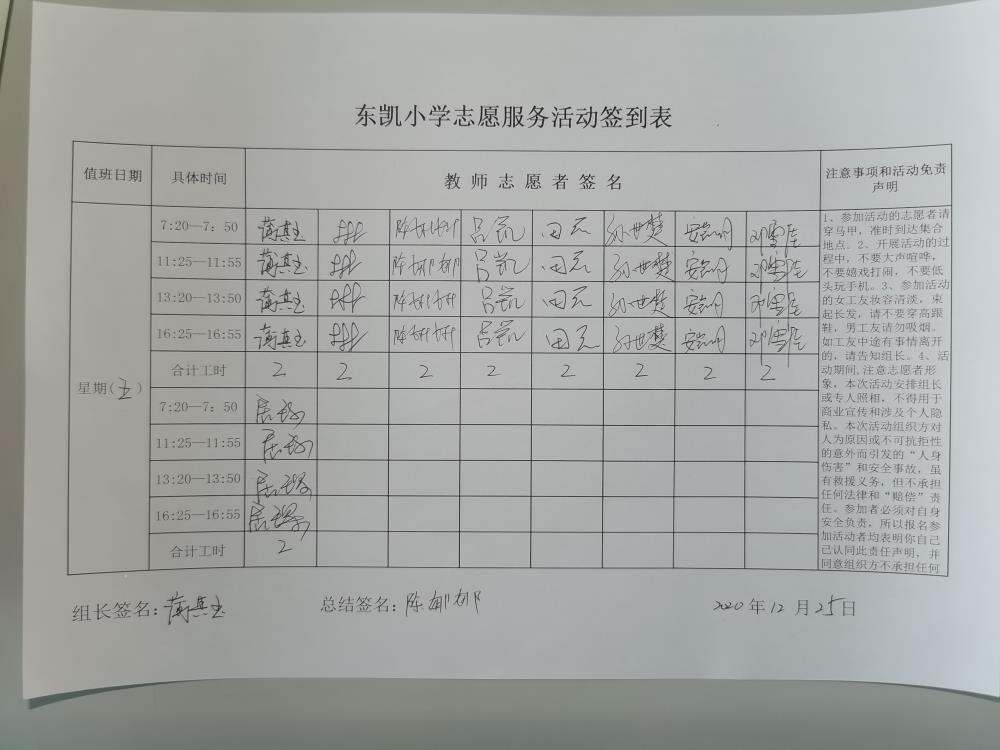 东凯小学志愿服务活动签到表
值班日期 具体时间 教师志愿者签名 注意事项和活动免责声明
星期(五)
7:20—7:50 吕凯 田元 孙世楚
11:25—11:55 吕凯 田元 孙世楚
13:20—13:50 吕凯 田元 孙世楚
16:25—16:55 吕凯 田元 孙世楚
合计工时 2 2 2 2 2 2 2 2
7:20—7:50
11:25—11:55
13:20—13:50
16:25—16:55
合计工时 2
1、参加活动的志愿者请
穿马甲,准时到达集合
地点。2、开展活动的过
程中,不要大声喧哗,
不要嬉戏打闹,不要低
头玩手机。3、参加活动
的女工友妆容清淡,束
起长发,请不要穿高跟
鞋,男工友请勿吸烟。
如工友中途有事情离开
的,请告知组长。4、活
动期间,注意志愿者形
象,本次活动安排组长
或专人照相,不得用于
商业宣传和涉及个人隐
私。本次活动组织方对
人为原因或不可抗拒性
的意外而引发的“人身
伤害”和安全事故,虽
有救援义务,但不承担
任何法律和“赔偿”责
任。参加者必须对自身
安全负责,所以报名参
加活动者均表明你自己
已认同此责任声明,并
同意组织方不承担任何
组长签名: 总结签名:陈娜娜 2020年12月25日